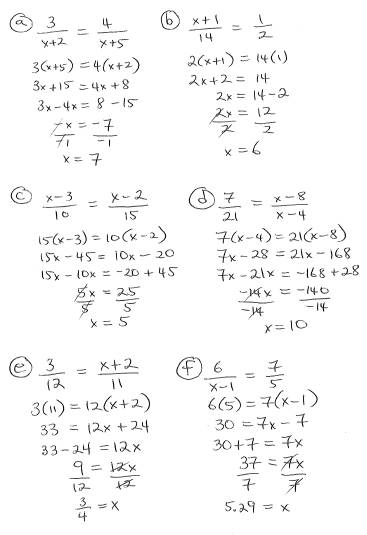 ⓐ 3/(x+2) = 4/(x+5)
3(x+5) = 4(x+2)
3x+15 = 4x+8
3x-4x = 8-15
-x/-1 = -7/-1
x = 7
ⓑ (x+1)/14 = 1/2
2(x+1) = 14(1)
2x+2 = 14
2x = 14-2
2x/2 = 12/2
x = 6
ⓒ (x-3)/10 = (x-2)/15
15(x-3) = 10(x-2)
15x-45 = 10x-20
15x-10x = -20+45
5x/5 = 25/5
x = 5
ⓓ 7/21 = (x-8)/(x-4)
7(x-4) = 21(x-8)
7x-28 = 21x-168
7x-21x = -168+28
-14x/-14 = -140/-14
x = 10
ⓔ 3/12 = (x+2)/11
3(11) = 12(x+2)
33 = 12x+24
33-24 = 12x
9/12 = 12x/12
3/4 = x
ⓕ 6/(x-1) = 7/5
6(5) = 7(x-1)
30 = 7x-7
30+7 = 7x
37/7 = 7x/7
5.29 = x